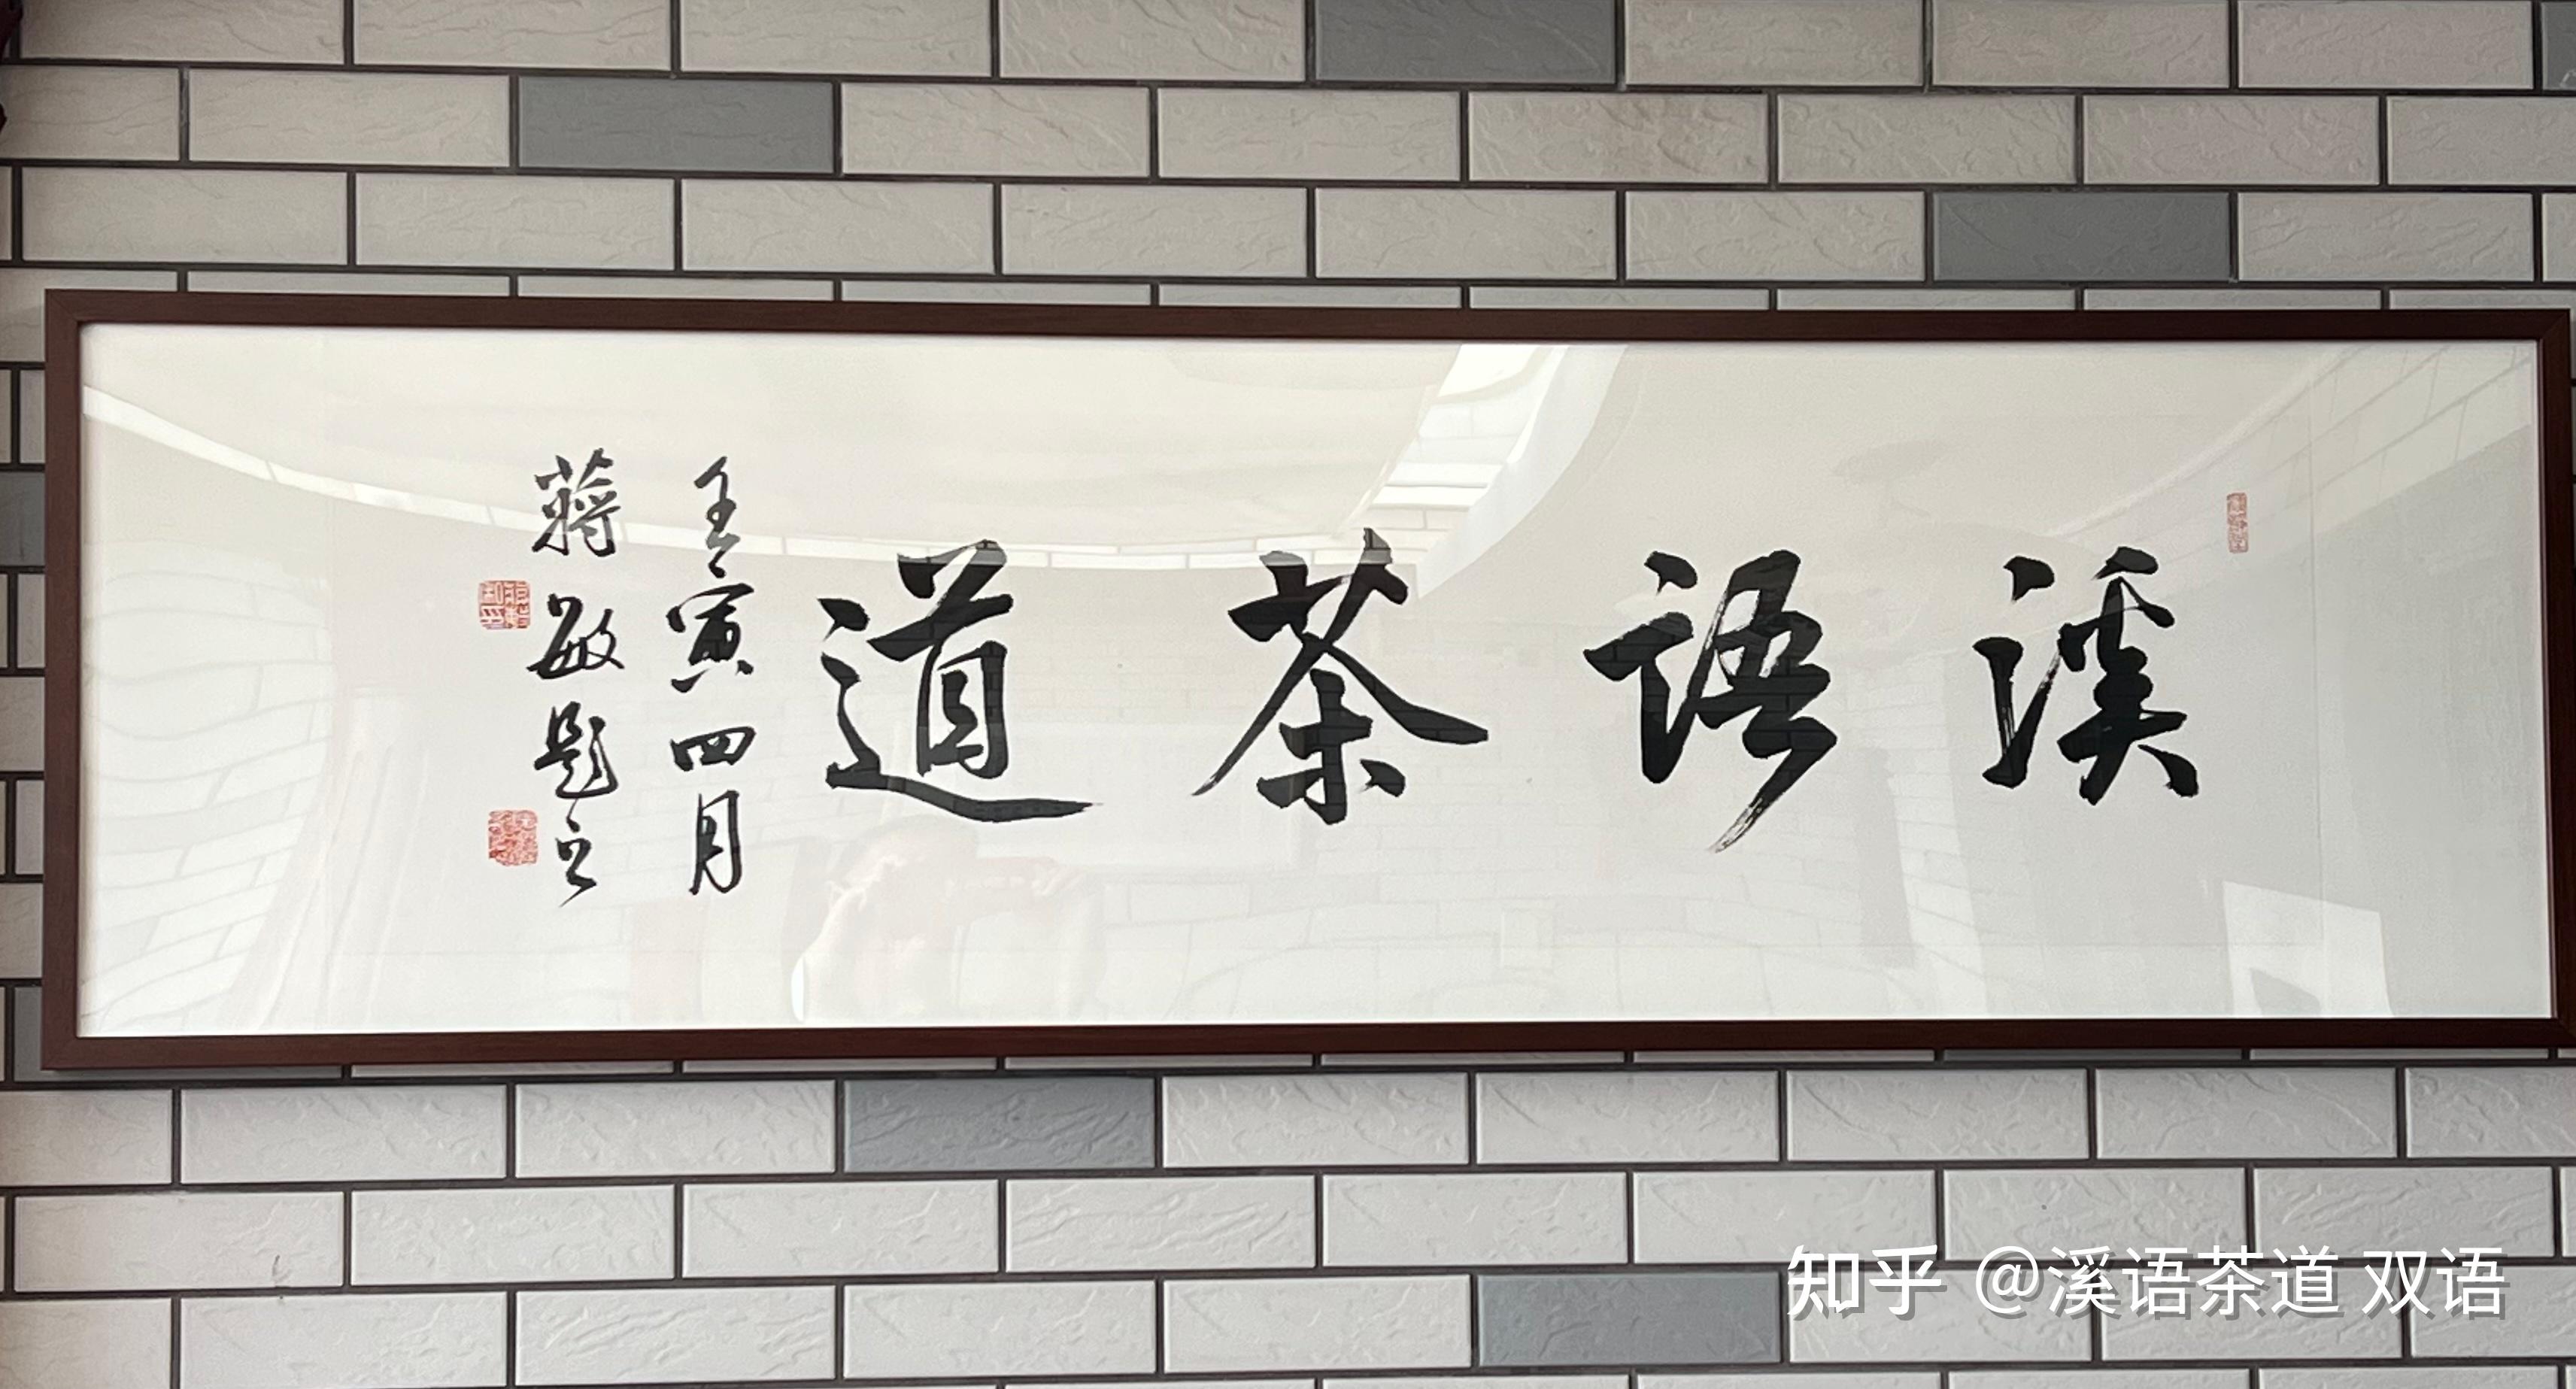 溪語茶道
壬寅四月
蔣敏題之
知乎 @溪语茶道 双语